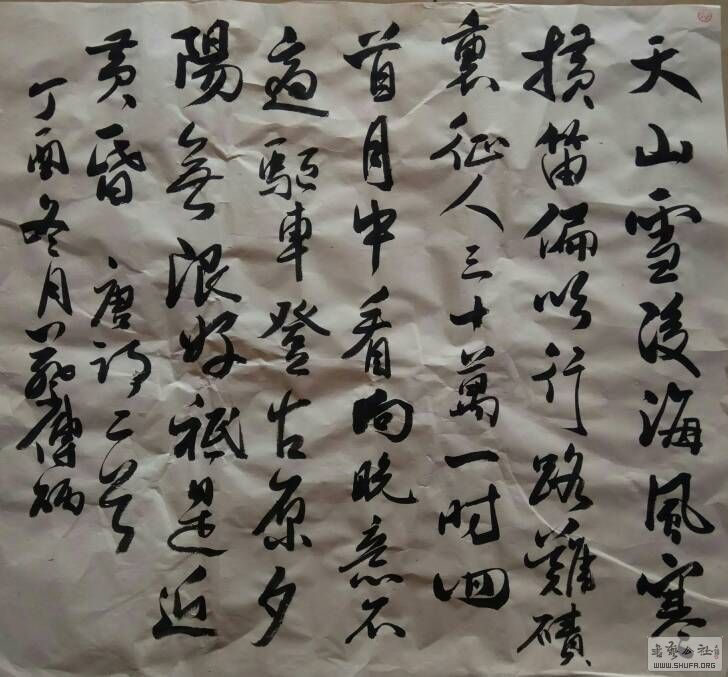 天山雪後海風寒
橫笛偏吹行路難磧
裏征人三十萬一時回
首月中看向晚意不
適驅車登古原夕
陽無限好祗是近
黃昏 唐詩二首
丁酉冬月 傅炳
書藝公社
WWW.SHUFA.ORG